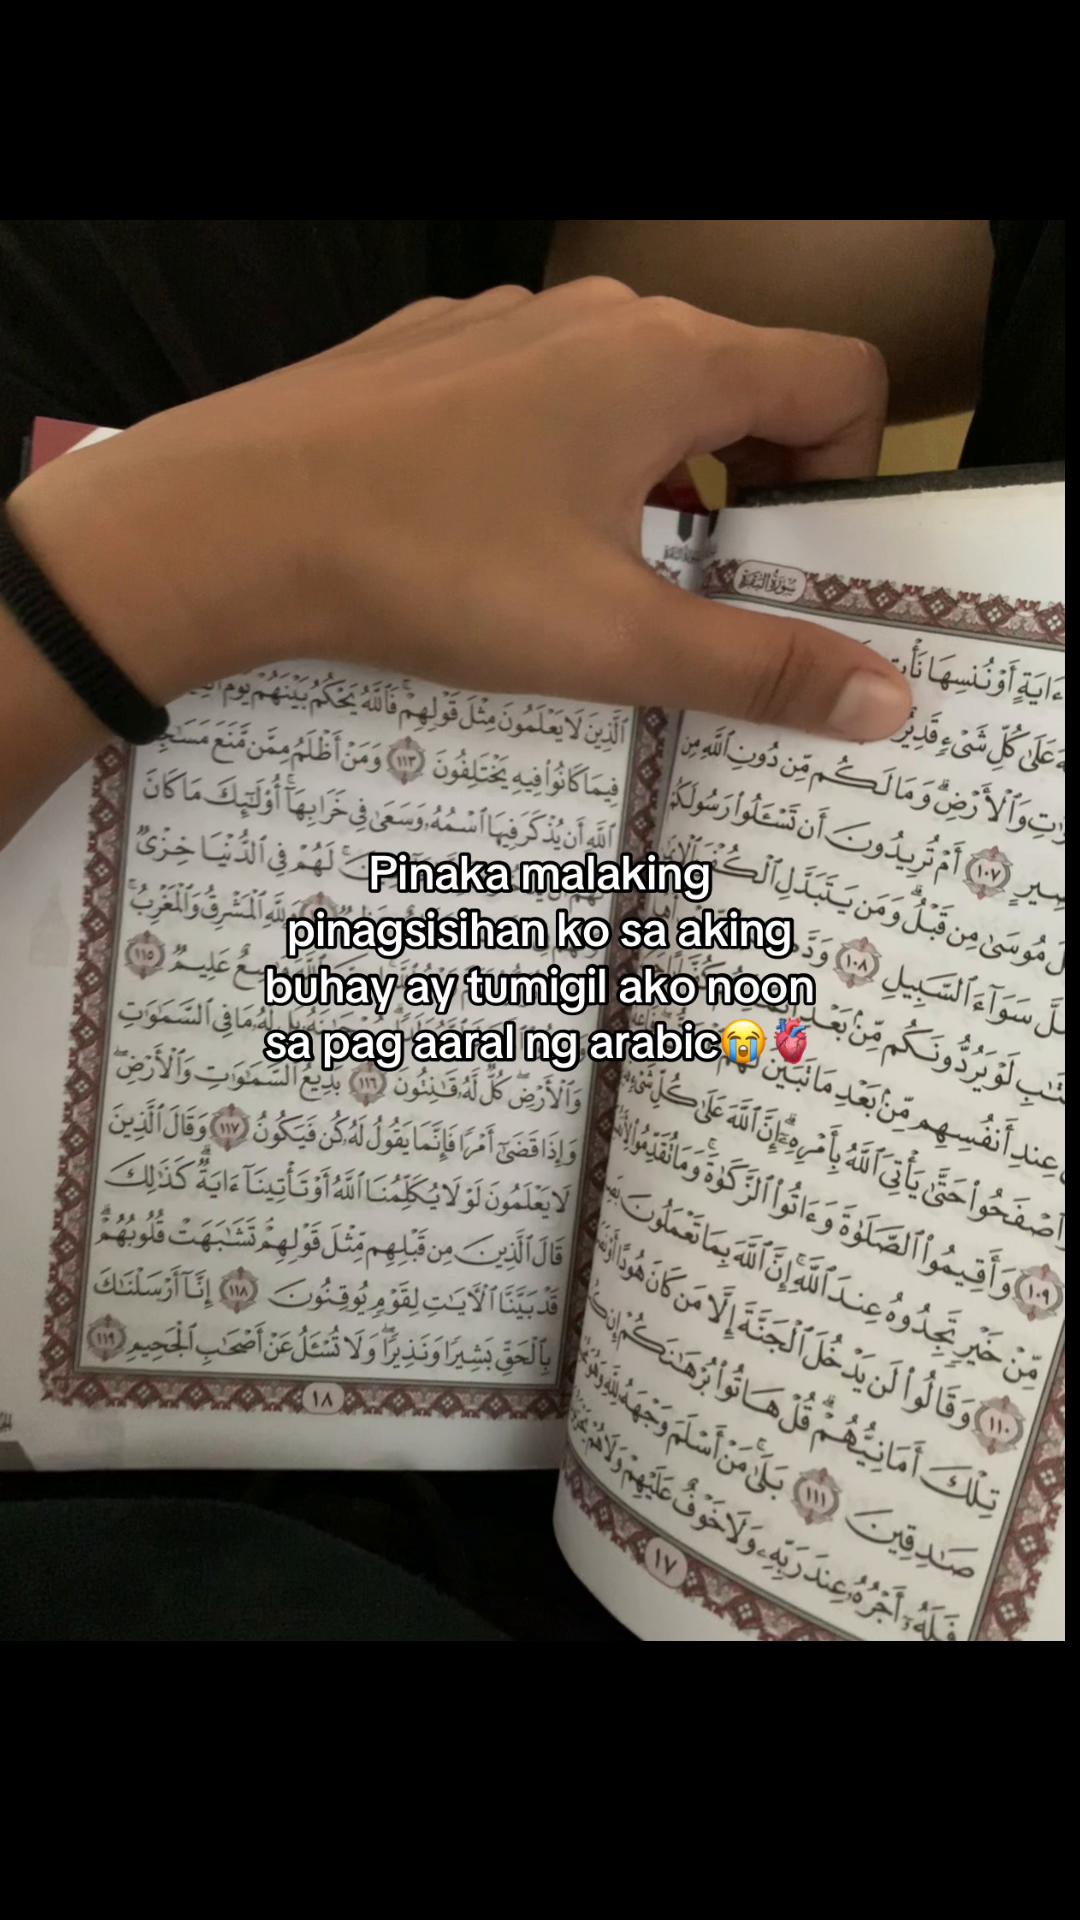 Pinaka malaking
pinagsisihan ko sa aking
buhay ay tumigil ako noon
sa pag aaral ng arabic😭🫀
سُورَةُ البَقَرَةِ
ءَايَةٍ أَوْ نُنسِهَا نَأْتِ
عَلَىٰ كُلِّ شَىْءٍ قَدِيرٌ
وَٱلْأَرْضِ ۗ وَمَا لَكُم مِّن دُونِ ٱللَّهِ مِن
١٠٧ أَمْ تُرِيدُونَ أَن تَسْـَٔلُوا۟ رَسُولَكُمْ
مُوسَىٰ مِن قَبْلُ ۗ وَمَن يَتَبَدَّلِ ٱلْكُفْرَ
سَوَآءَ ٱلسَّبِيلِ ١٠٨ وَدَّ
لَوْ يَرُدُّونَكُم مِّنۢ بَعْدِ
عِندِ أَنفُسِهِم مِّنۢ بَعْدِ مَا تَبَيَّنَ لَهُمُ
حَتَّىٰ يَأْتِىَ ٱللَّهُ بِأَمْرِهِۦٓ ۗ إِنَّ ٱللَّهَ عَلَىٰ كُلِّ شَىْءٍ
١٠٩ وَأَقِيمُوا۟ ٱلصَّلَوٰةَ وَءَاتُوا۟ ٱلزَّكَوٰةَ ۚ وَمَا تُقَدِّمُوا۟
مِّنْ خَيْرٍ تَجِدُوهُ عِندَ ٱللَّهِ ۗ إِنَّ ٱللَّهَ بِمَا تَعْمَلُونَ
١١٠ وَقَالُوا۟ لَن يَدْخُلَ ٱلْجَنَّةَ إِلَّا مَن كَانَ هُودًا أَوْ
تِلْكَ أَمَانِيُّهُمْ ۗ قُلْ هَاتُوا۟ بُرْهَـٰنَكُمْ إِن
صَـٰدِقِينَ ١١١ بَلَىٰ مَنْ أَسْلَمَ وَجْهَهُۥ لِلَّهِ وَهُوَ
فَلَهُۥٓ أَجْرُهُۥ عِندَ رَبِّهِۦ وَلَا خَوْفٌ عَلَيْهِمْ وَلَا هُمْ
١٧
ٱلَّذِينَ لَا يَعْلَمُونَ مِثْلَ قَوْلِهِمْ ۚ فَٱللَّهُ يَحْكُمُ بَيْنَهُمْ يَوْمَ
فِيمَا كَانُوا۟ فِيهِ يَخْتَلِفُونَ ١١٣ وَمَنْ أَظْلَمُ مِمَّن مَّنَعَ مَسَـٰجِدَ
ٱللَّهِ أَن يُذْكَرَ فِيهَا ٱسْمُهُۥ وَسَعَىٰ فِى خَرَابِهَآ ۚ أُو۟لَـٰٓئِكَ مَا كَانَ
لَهُمْ فِى ٱلدُّنْيَا خِزْىٌ
وَلِلَّهِ ٱلْمَشْرِقُ وَٱلْمَغْرِبُ ۚ
عَلِيمٌ ١١٥
مَا فِى ٱلسَّمَـٰوَٰتِ
وَٱلْأَرْضِ ۖ كُلٌّ لَّهُۥ قَـٰنِتُونَ ١١٦ بَدِيعُ ٱلسَّمَـٰوَٰتِ وَٱلْأَرْضِ ۖ
وَإِذَا قَضَىٰٓ أَمْرًا فَإِنَّمَا يَقُولُ لَهُۥ كُن فَيَكُونُ ١١٧ وَقَالَ ٱلَّذِينَ
لَا يَعْلَمُونَ لَوْلَا يُكَلِّمُنَا ٱللَّهُ أَوْ تَأْتِينَآ ءَايَةٌ ۗ كَذَٰلِكَ
قَالَ ٱلَّذِينَ مِن قَبْلِهِم مِّثْلَ قَوْلِهِمْ ۘ تَشَـٰبَهَتْ قُلُوبُهُمْ ۗ
قَدْ بَيَّنَّا ٱلْـَٔايَـٰتِ لِقَوْمٍ يُوقِنُونَ ١١٨ إِنَّآ أَرْسَلْنَـٰكَ
بِٱلْحَقِّ بَشِيرًا وَنَذِيرًا ۖ وَلَا تُسْـَٔلُ عَنْ أَصْحَـٰبِ ٱلْجَحِيمِ ١١٩
١٨